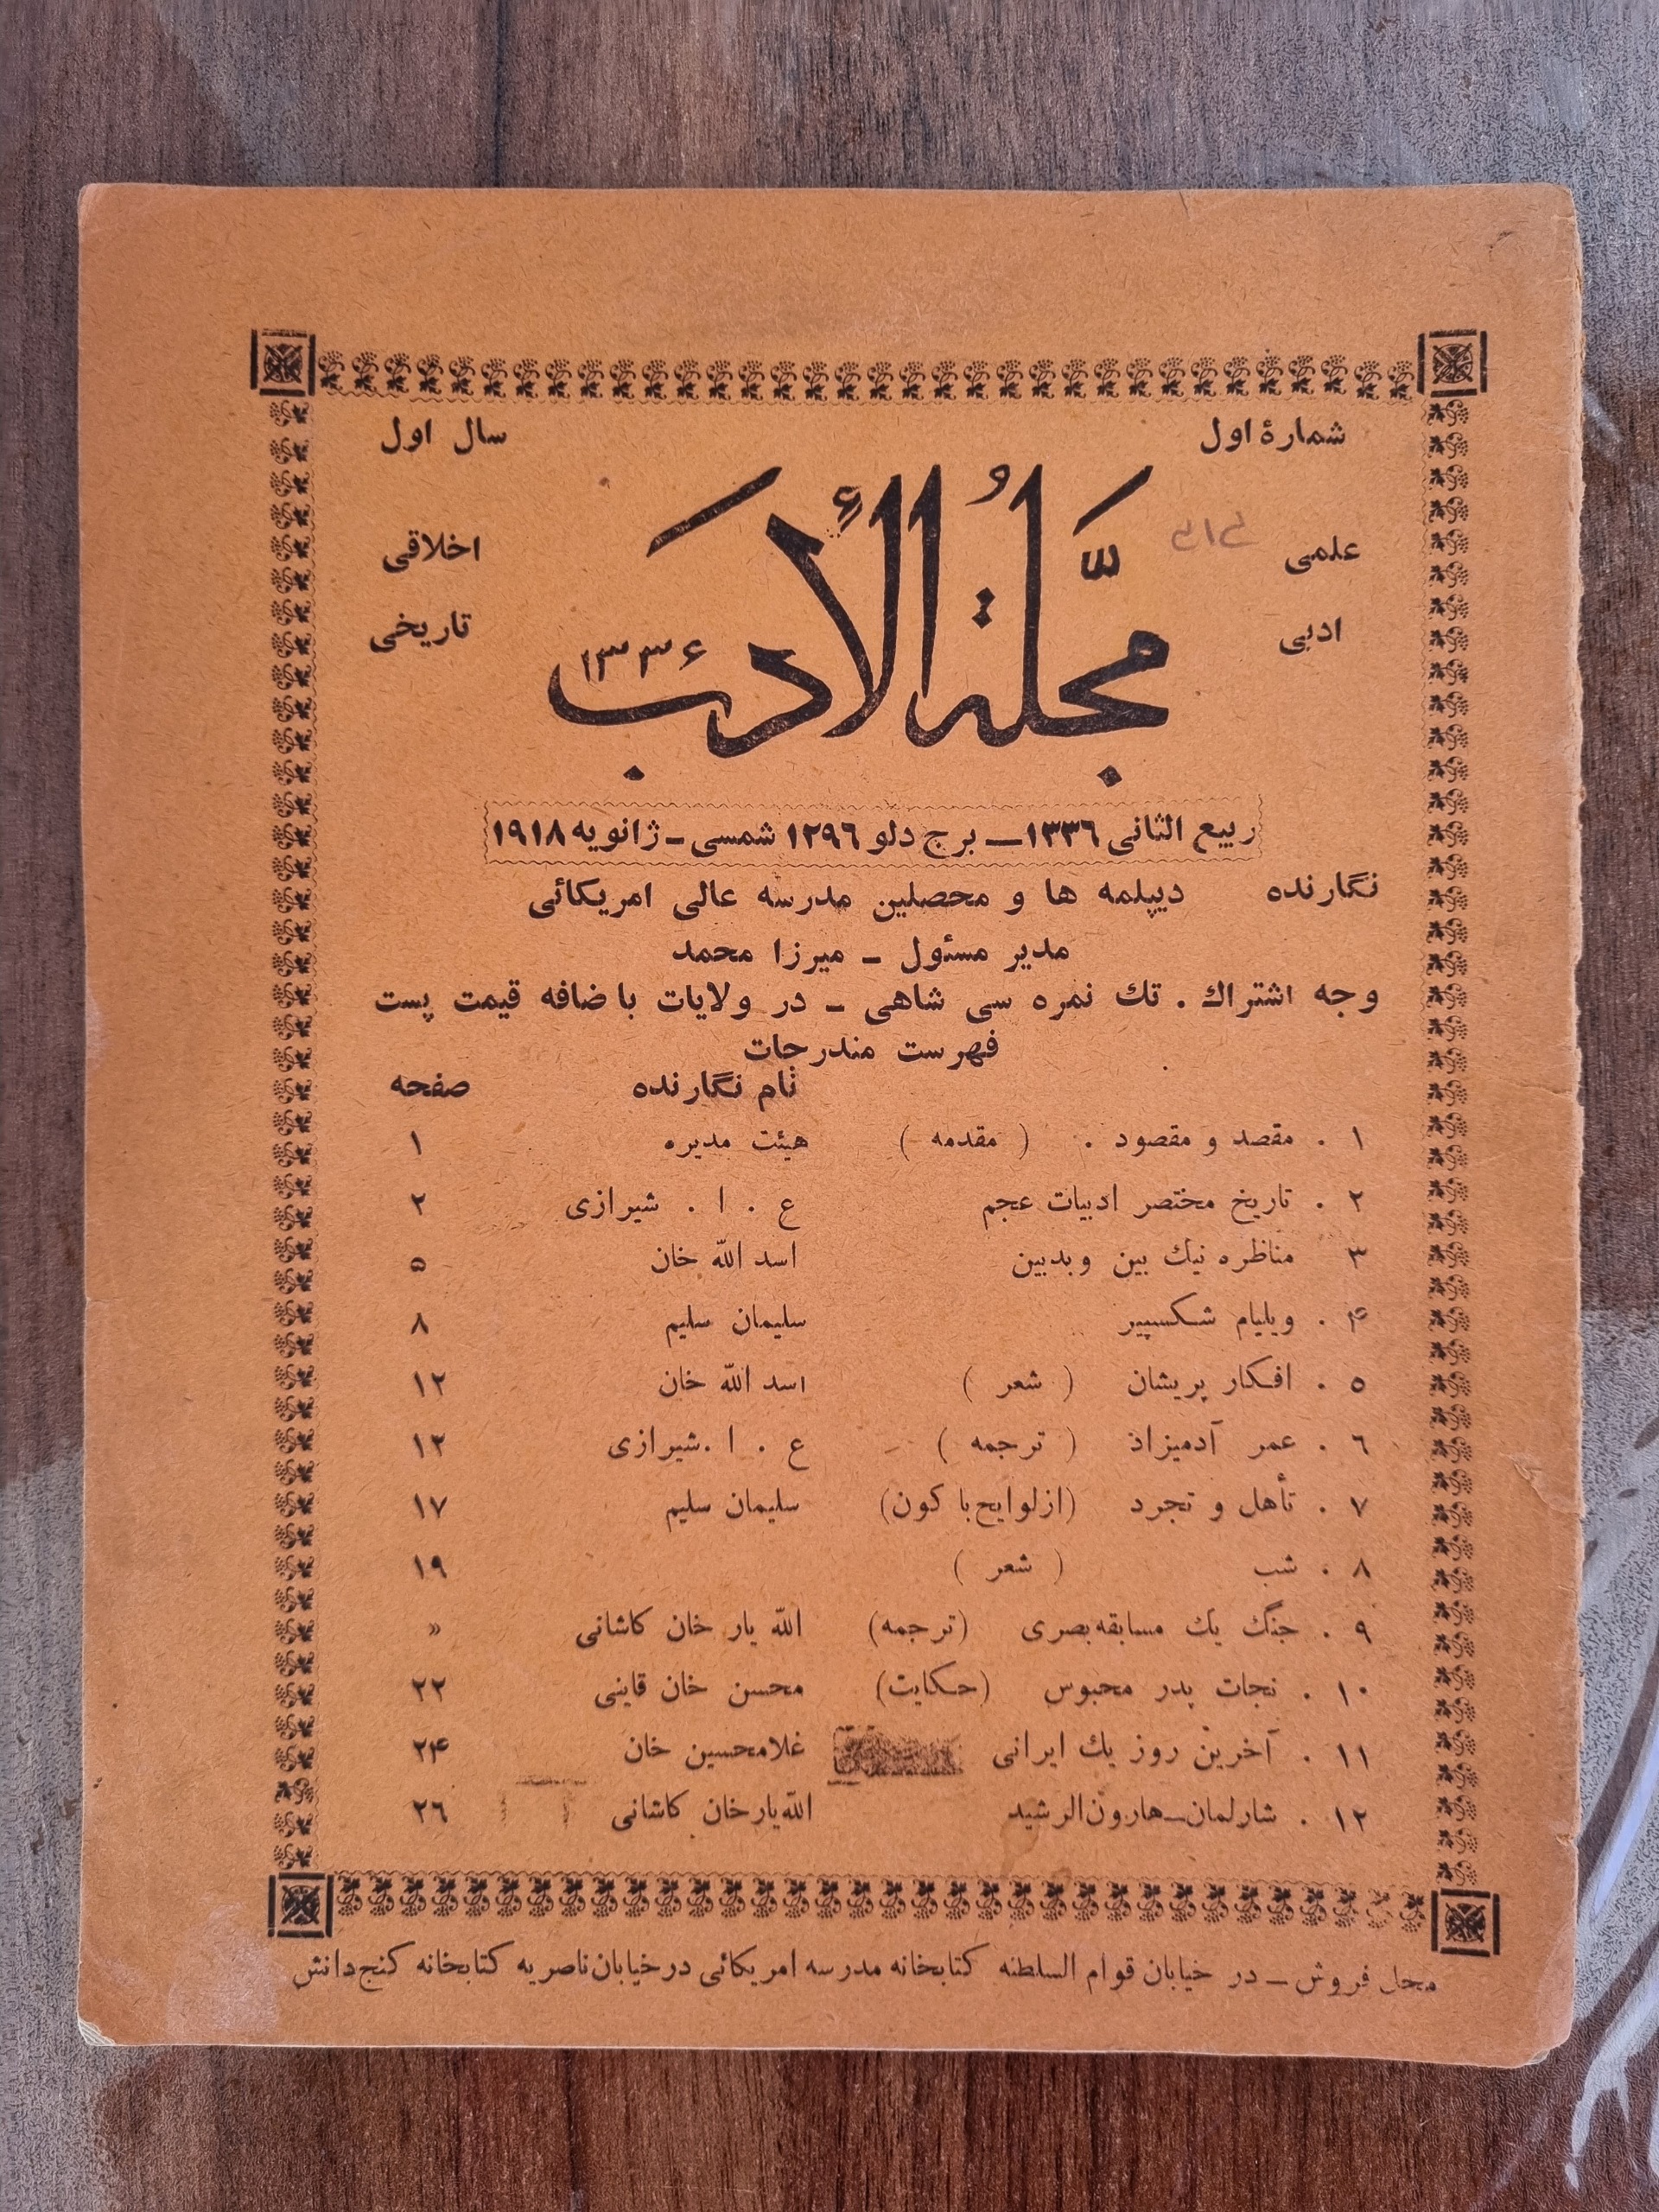 شمارهٔ اول سال اول
مجلة الأدب
۱۳۳۶
علمی اخلاقی
ادبی تاریخی
ربیع الثانی ۱۳۳٦ — برج دلو ۱۲۹٦ شمسی - ژانویه ۱۹۱۸
نگارنده دیپلمه ها و محصلین مدرسه عالی امریکائی
مدیر مسئول - میرزا محمد
وجه اشتراك . تك نمره سی شاهی - در ولایات باضافه قیمت پست
فهرست مندرجات
نام نگارنده صفحه
۱ . مقصد و مقصود . ( مقدمه ) هیئت مدیره ۱
۲ . تاریخ مختصر ادبیات عجم ع . ا . شیرازی ۲
۳ مناظره نیك بین وبدبین اسد الله خان ۵
۴ . ویلیام شکسپیر سلیمان سلیم ۸
۵ . افکار پریشان ( شعر ) اسد الله خان ۱۲
٦ . عمر آدمیزاد ( ترجمه ) ع . ا .شیرازی ۱۲
۷ . تأهل و تجرد (ازلوایح باکون) سلیمان سلیم ۱۷
۸ . شب ( شعر ) ۱۹
۹ . جنگ یك مسابقه بصری (ترجمه) الله یار خان کاشانی »
۱۰ . نجات پدر محبوس (حکایت) محسن خان قاینی ۲۲
۱۱ . آخرین روز یك ایرانی غلامحسین خان ۲۴
۱۲ . شارلمان—هارون‌الرشید الله‌یارخان کاشانی ۲٦
محل فروش — در خیابان قوام السلطنه کتابخانه مدرسه امریکائی درخیابان ناصریه کتابخانه کنج‌دانش